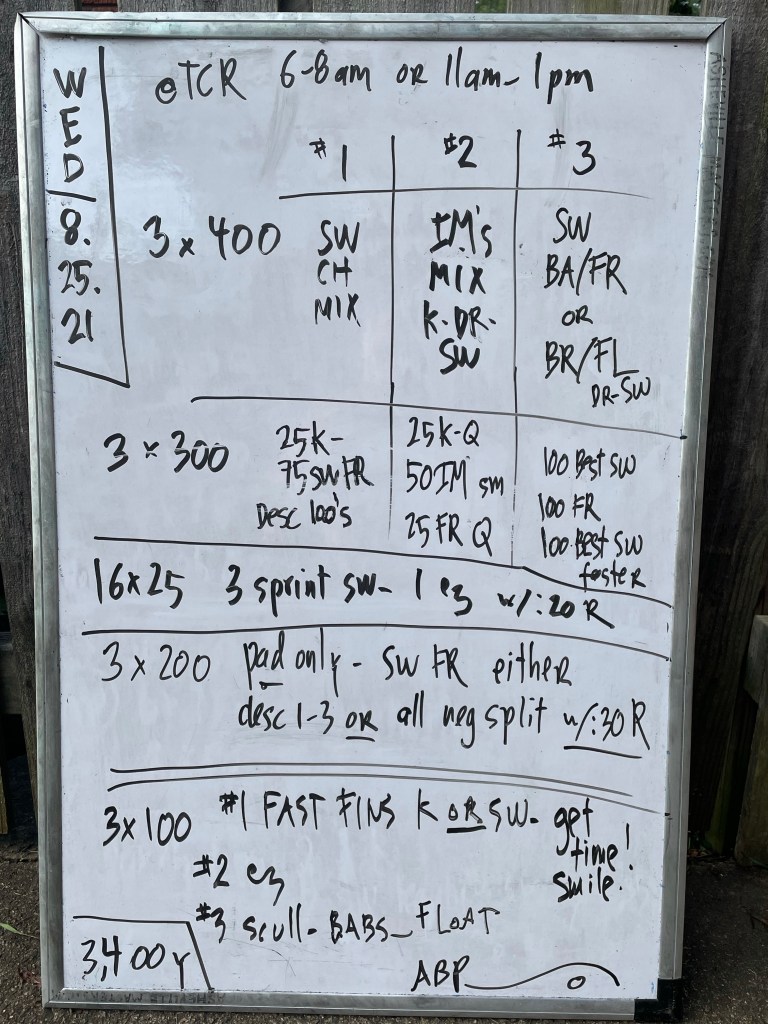 WED
8.
25.
21
@TCR 6-8am OR 11am-1pm
#1 #2 #3
3 x 400
SW
CH
MIX
IM's
MIX
K-DR-
SW
SW
BA/FR
OR
BR/FL
DR-SW
3 x 300
25K-
75SWFR
Desc 100's
25K-Q
50IM sm
25 FR Q
100 Best SW
100 FR
100 Best SW
faster
16x25 3 sprint sw- 1 ez w/:20 R
3 x 200 pad only - SW FR either
desc 1-3 or all neg split w/:30 R
3x100 #1 FAST FINS K OR SW- get
time!
smile!
#2 ez
#3 scull- BABS_FLOAT
3,400y
ABP